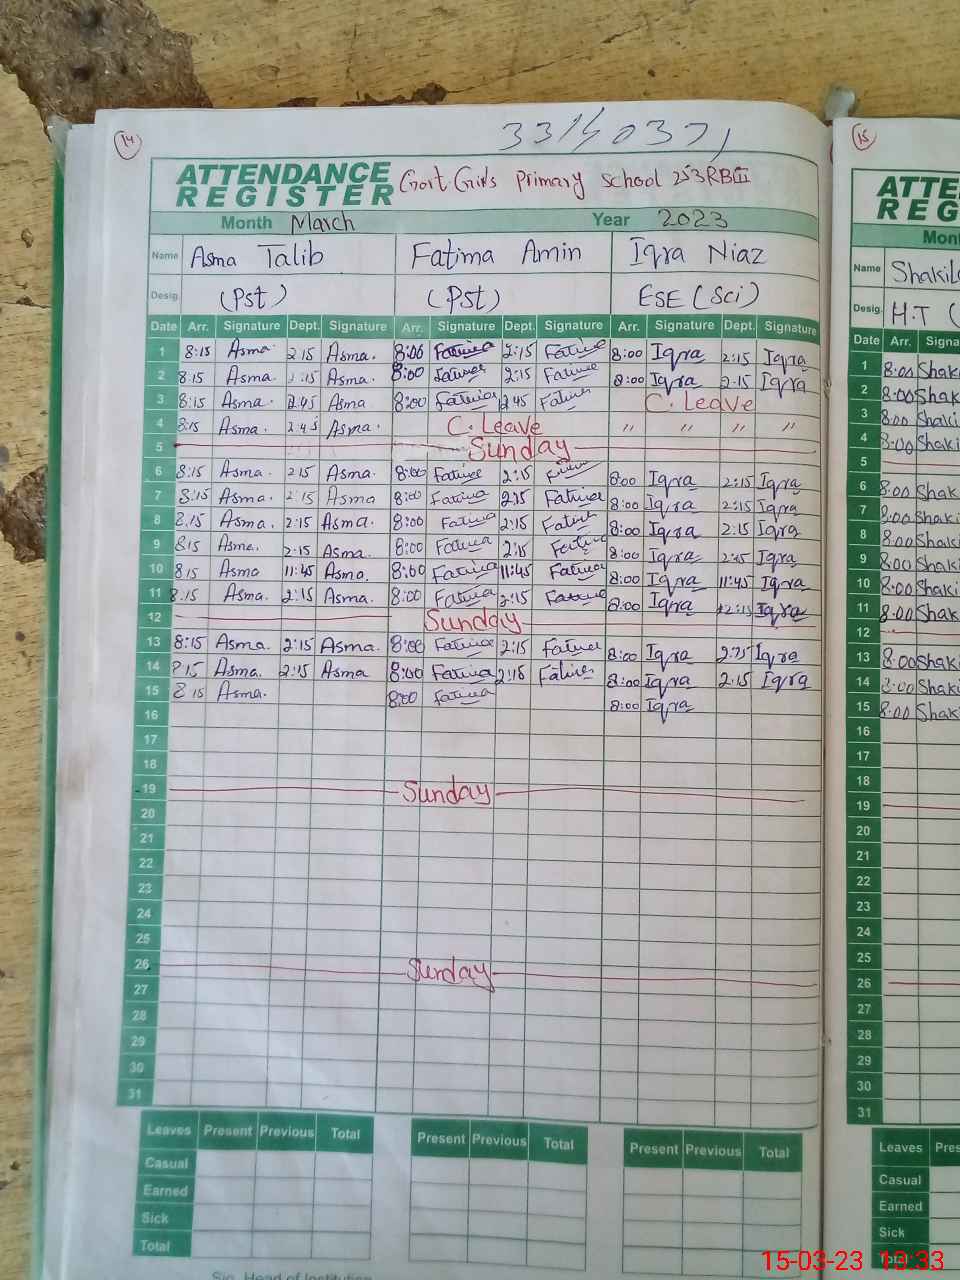 14
33140371
15
ATTENDANCE REGISTER Govt Girls Primary School 253RBIII
Month March Year 2023
Name Asma Talib Fatima Amin Iqra Niaz
Desig. (Pst) (Pst) ESE (Sci)
Date Arr. Signature Dept. Signature Arr. Signature Dept. Signature Arr. Signature Dept. Signature
1 8:15 Asma. 2 15 Asma. 8:00 Fatima 2:15 Fatima 8:00 Iqra 2:15 Iqra
2 8.15 Asma. :15 Asma. 8:00 Fatima 2:15 Fatima 8:00 Iqra 2.15 Iqra
3 8:15 Asma. 2:45 Asma 8:00 Fatima 2:45 Fatima C. Leave
4 8:15 Asma. 2:45 Asma. C. Leave " " " "
5 Sunday
6 8:15 Asma. 2:15 Asma. 8:00 Fatima 2:15 Fatima 8:00 Iqra 2:15 Iqra
7 8:15 Asma. 2:15 Asma 8:00 Fatima 2:15 Fatima 8:00 Iqra 2:15 Iqra
8 8.15 Asma. 2:15 Asma. 8:00 Fatima 2:15 Fatima 8:00 Iqra 2.15 Iqra
9 8:15 Asma. 2.15 Asma. 8:00 Fatima 2:15 Fatima 8:00 Iqra Iqra
10 8:15 Asma 11:45 Asma. 8:00 Fatima 11:45 Fatima 8:00 Iqra 11:45 Iqra
11 8.15 Asma. 2:15 Asma. 8:00 Fatima 2:15 Fatima 8:00 Iqra 2:15 Iqra
12 Sunday
13 8:15 Asma. 2:15 Asma. 8:00 Fatima 2:15 Fatima 8:00 Iqra Iqra
14 8:15 Asma. 2:15 Asma 8:00 Fatima 2:15 Fatima 8:00 Iqra 2.15 Iqra
15 8 15 Asma. 8:00 Fatima 8:00 Iqra
16
17
18
19 Sunday
20
21
22
23
24
25
26 Sunday
27
28
29
30
31
Leaves Present Previous Total Present Previous Total Present Previous Total
Casual
Earned
Sick
Total
Sig. Head of Institution
ATTE
REG
Mon
Name Shakil
Desig. H.T (
Date Arr. Signa
1 8:00 Shak
2 8:00 Shak
3 8:00 Shaki
4 8:00 Shaki
5
6 8:00 Shak
7 8:00 Shak
8 8:00 Shaki
9 8:00 Shaki
10 8:00 Shak
11 8:00 Shak
12
13 8:00 Shak
14 8:00 Shak
15 8:00 Shaki
16
17
18
19
20
21
22
23
24
25
26
27
28
29
30
31
Leaves Pres
Casual
Earned
Sick
Total
15-03-23 13:33